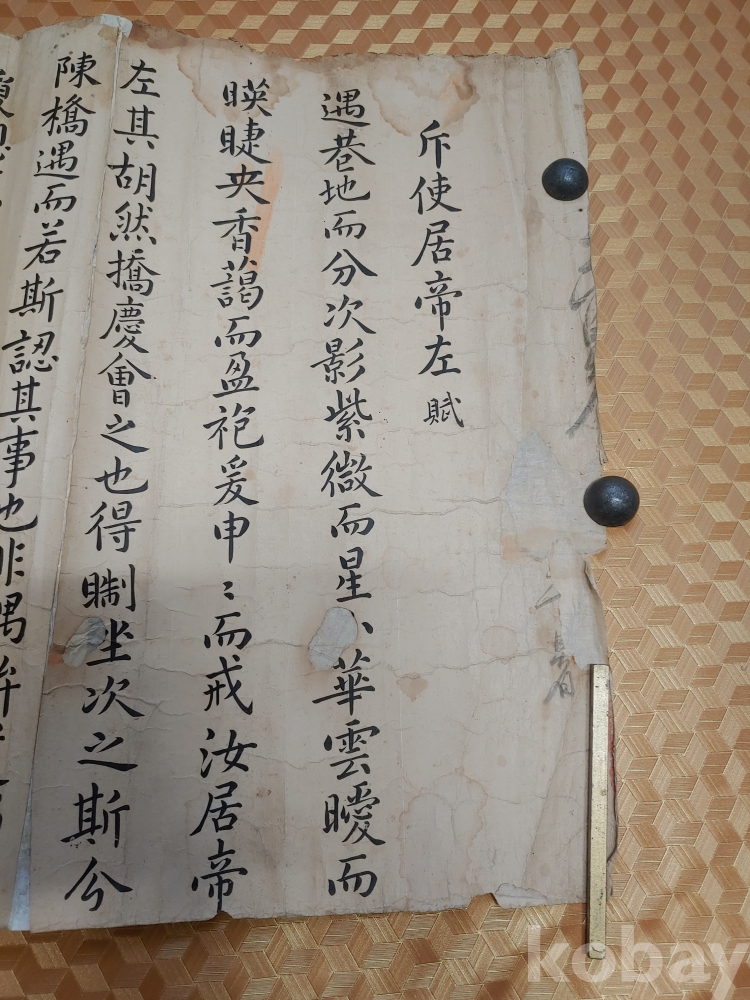 斥使居帝左賦
遇巷地而分次影紫微而星丶華雲曖而
暎睫央香藹而盈袍爰申〻而戒汝居帝
左其胡然撟慶會之也得瞓坐次之斯兮
陳橋遇而若斯認其事也非偶
kobay